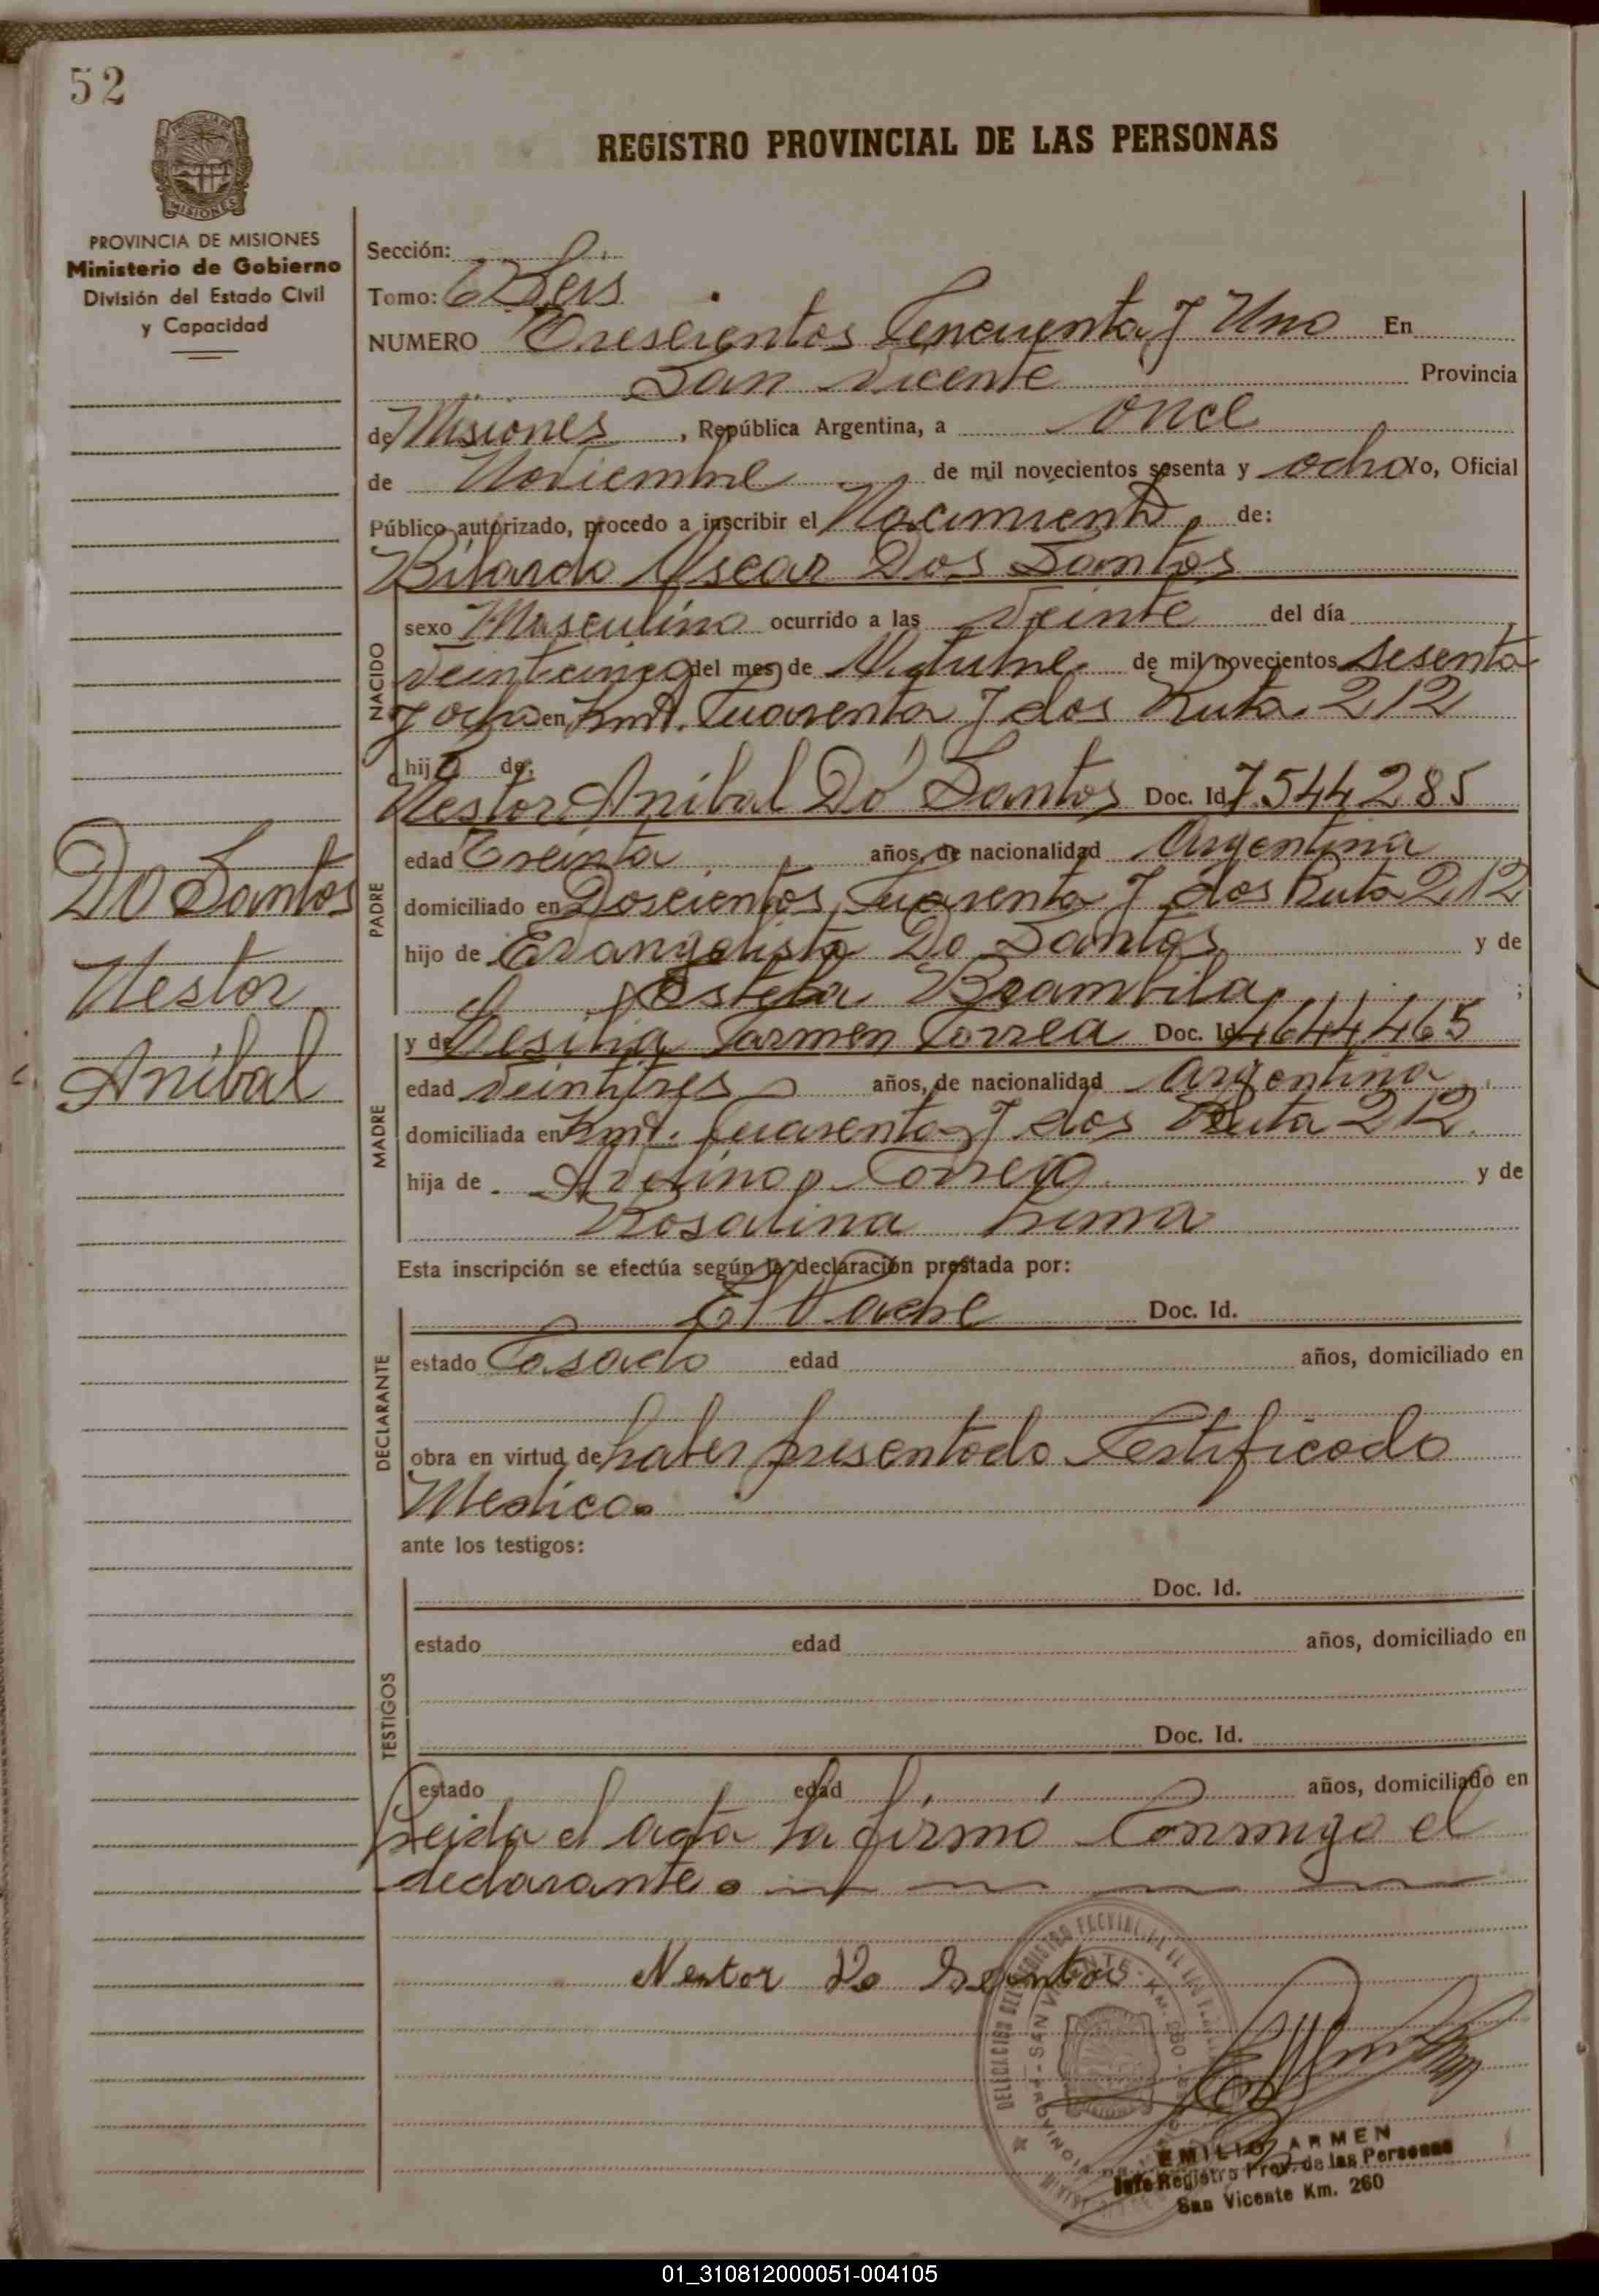 52
REGISTRO PROVINCIAL DE LAS PERSONAS
PROVINCIA DE MISIONES
Ministerio de Gobierno
División del Estado Civil
y Capacidad
MISIONES
Sección:
Tomo: 6 Seis
NUMERO Trescientos Cencuenta y Uno En
San Vicente Provincia
de Misiones, República Argentina, a once
de Noviembre de mil novecientos sesenta y ocho yo, Oficial
Público autorizado, procedo a inscribir el Nacimiento de:
Bilardo Oscar Dos Santos
NACIDO
sexo Masculino ocurrido a las Veinte del día
Veinticinco del mes de Octubre de mil novecientos sesenta
y ocho en Kmt. Cuarenta y dos Ruta 212
hijo de:
Do Santos
Nestor
Anibal
PADRE
Nestor Anibal Do Santos Doc. Id 7.544.285
edad Treinta años, de nacionalidad Argentina
domiciliado en Doscientos Cuarenta y dos Ruta 212
hijo de Evangelista Do Santos y de
Estela Brambila ;
MADRE
y de Carmen Correa Doc. Id 4644465
edad Veintitres años, de nacionalidad Argentina
domiciliada en Kmt. Cuarenta y dos Ruta 212.
hija de Avelino Correa y de
Rosalina Lima
Esta inscripción se efectúa según la declaración prestada por:
DECLARANTE
El Padre Doc. Id.
estado Casado edad años, domiciliado en
obra en virtud de haber presentado Certificado
Medico.
ante los testigos:
TESTIGOS
Doc. Id.
estado edad años, domiciliado en
Doc. Id.
estado edad años, domiciliado en
Leida el acta la firmó Conmigo el
declarante.
Nestor Do Santos
EMILIO ARMEN
Jefe Registro Prov. de las Personas
San Vicente Km. 260
01_310812000051-004105